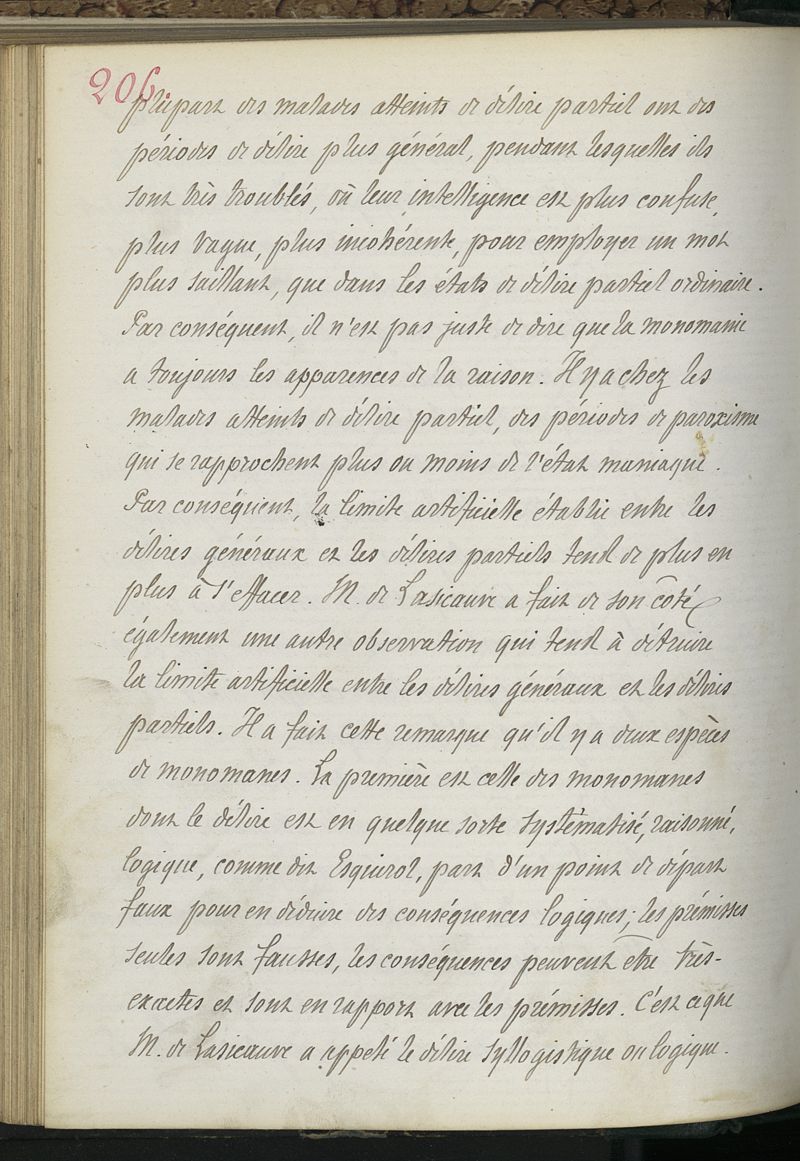 206.
plupart des malades atteints de délire partiel ont des
périodes de délire plus général, pendant lesquelles ils
sont très troublés, où leur intelligence est plus confuse,
plus vague, plus incohérente, pour employer un mot
plus saillant, que dans les états de délire partiel ordinaire.
Par conséquent, il n'est pas juste de dire que la monomanie
a toujours les apparences de la raison. Il y a chez les
malades atteints de délire partiel, des périodes de paroxisme
qui se rapprochent plus ou moins de l'état maniaque.
Par conséquent, la limite artificielle établie entre les
délires généraux et les délires partiels tend de plus en
plus à s'effacer. M. de Lasicauve a fait de son côté
également une autre observation qui tend à détruire
la limite artificielle entre les délires généraux et les délires
partiels. Il a fait cette remarque qu'il y a deux espèces
de monomanes. La première est celle des monomanes
dont le délire est en quelque sorte systématisé, raisonné,
logique, comme dit Esquirol, part d'un point de départ
faux pour en déduire des conséquences logiques; les prémisses
seules sont fausses, les conséquences peuvent être très-
exactes et sont en rapport avec les prémisses. C'est ce que
M. de Lasicauve a appelé le délire syllogistique ou logique.